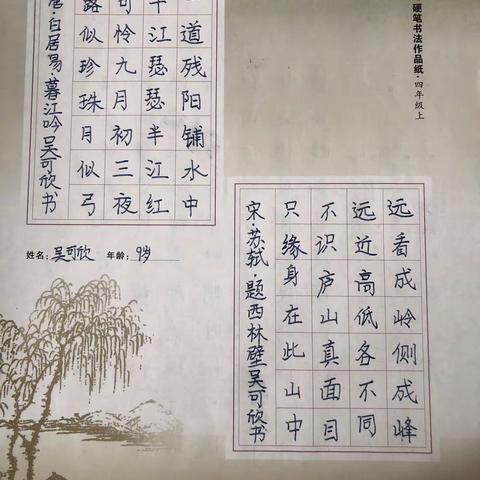 硬笔书法作品纸·四年级上
道残阳铺水中
江瑟瑟半江红
可怜九月初三夜
露似珍珠月似弓
白居易·暮江吟吴可欣书
姓名：吴可欣 年龄：9岁
远看成岭侧成峰
远近高低各不同
不识庐山真面目
只缘身在此山中
宋·苏轼·题西林壁吴可欣书